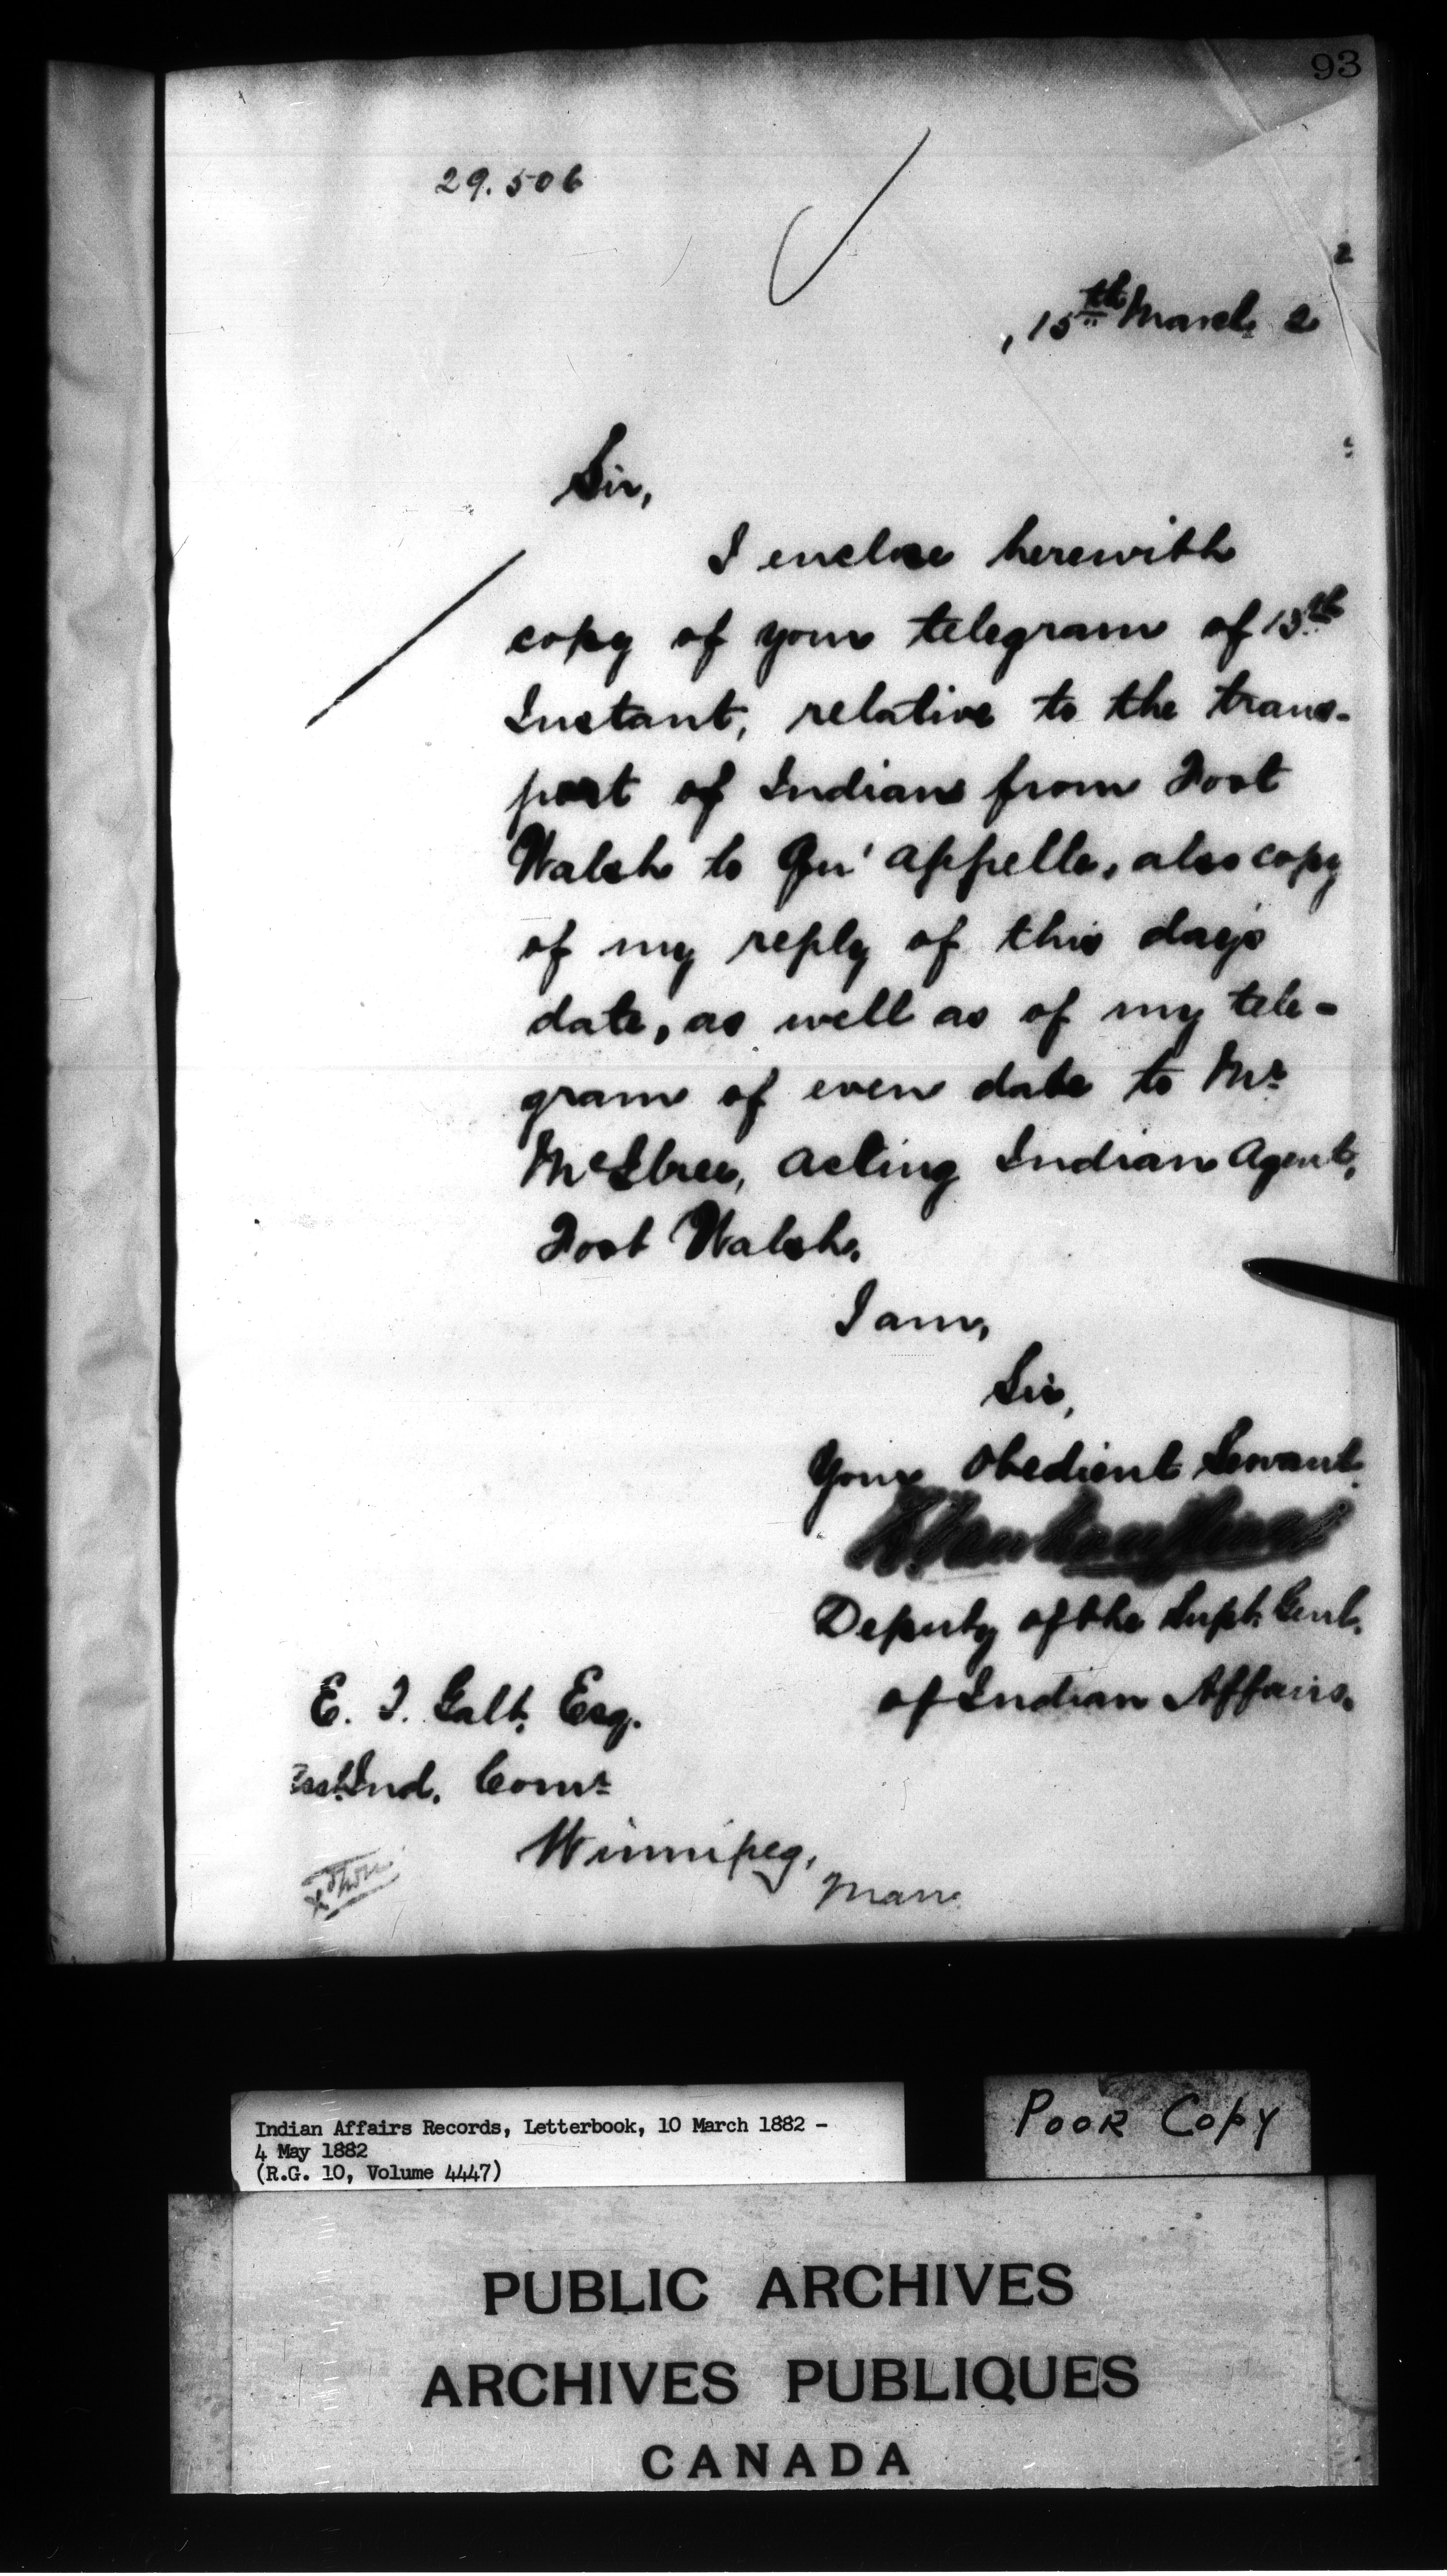 93
29.506
15th March 2
Sir,
I enclose herewith
copy of your telegram of 13th
Instant, relative to the trans-
port of Indians from Fort
Walsh to Qu'Appelle, also copy
of my reply of this day's
date, as well as of my tele-
gram of even date to Mr
McIlree, Acting Indian Agent,
Fort Walsh.
I am,
Sir,
Your Obedient Servant
L. Vankoughnet
Deputy of the Supt. Genl.
of Indian Affairs.
E. T. Galt, Esq.
Asst. Ind. Comr
Winnipeg,
Man.
Indian Affairs Records, Letterbook, 10 March 1882 -
4 May 1882
(R.G. 10, Volume 4447)
POOR COPY
PUBLIC ARCHIVES
ARCHIVES PUBLIQUES
CANADA